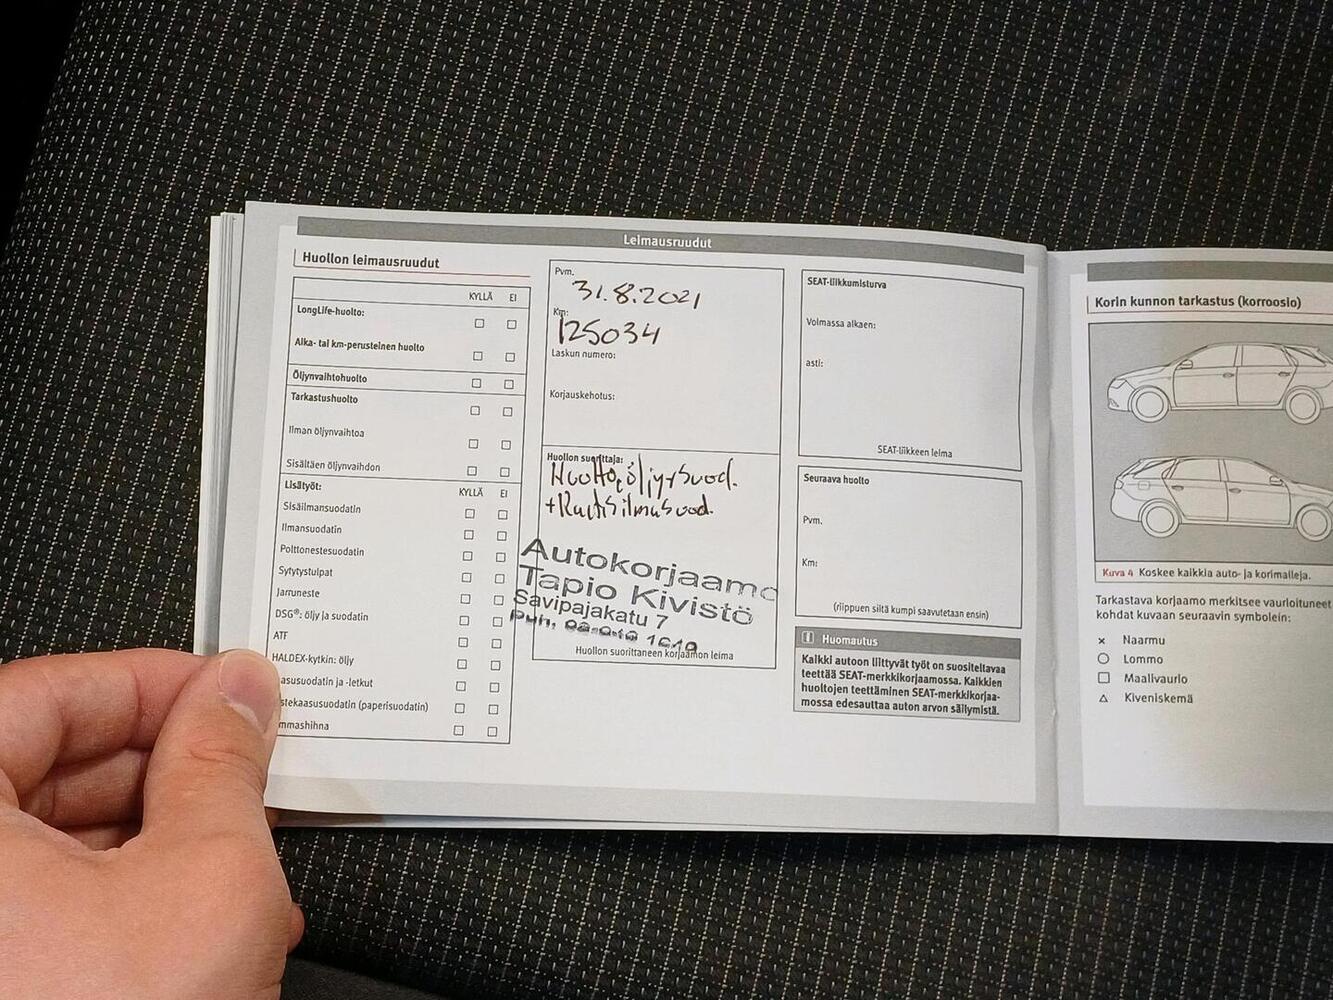 Leimausruudut
Huollon leimausruudut
KYLLÄ EI
LongLife-huolto:
Aika- tai km-perusteinen huolto
Öljynvaihtohuolto
Tarkastushuolto
Ilman öljynvaihtoa
Sisältäen öljynvaihdon
Lisätyöt: KYLLÄ EI
Sisäilmansuodatin
Ilmansuodatin
Polttonestesuodatin
Sytytystulpat
Jarruneste
DSG®: öljy ja suodatin
ATF
HALDEX-kytkin: öljy
asusuodatin ja -letkut
stekaasusuodatin (paperisuodatin)
mmashihna
Pvm.
31.8.2021
Km:
125034
Laskun numero:
Korjauskehotus:
Huollon suorittaja:
Huolto, öljy+suod.
+Raitisilmasuod.
Autokorjaamo
Tapio Kivistö
Savipajakatu 7
puh.
Huollon suorittaneen korjaamon leima
SEAT-liikkumisturva
Voimassa alkaen:
asti:
SEAT-liikkeen leima
Seuraava huolto
Pvm.
Km:
(riippuen siitä kumpi saavutetaan ensin)
i Huomautus
Kaikki autoon liittyvät työt on suositeltavaa
teettää SEAT-merkkikorjaamossa. Kaikkien
huoltojen teettäminen SEAT-merkkikorjaa-
mossa edesauttaa auton arvon säilymistä.
Korin kunnon tarkastus (korroosio)
Kuva 4 Koskee kaikkia auto- ja korimalleja.
Tarkastava korjaamo merkitsee vaurioituneet
kohdat kuvaan seuraavin symbolein:
× Naarmu
○ Lommo
□ Maalivaurio
△ Kiveniskemä